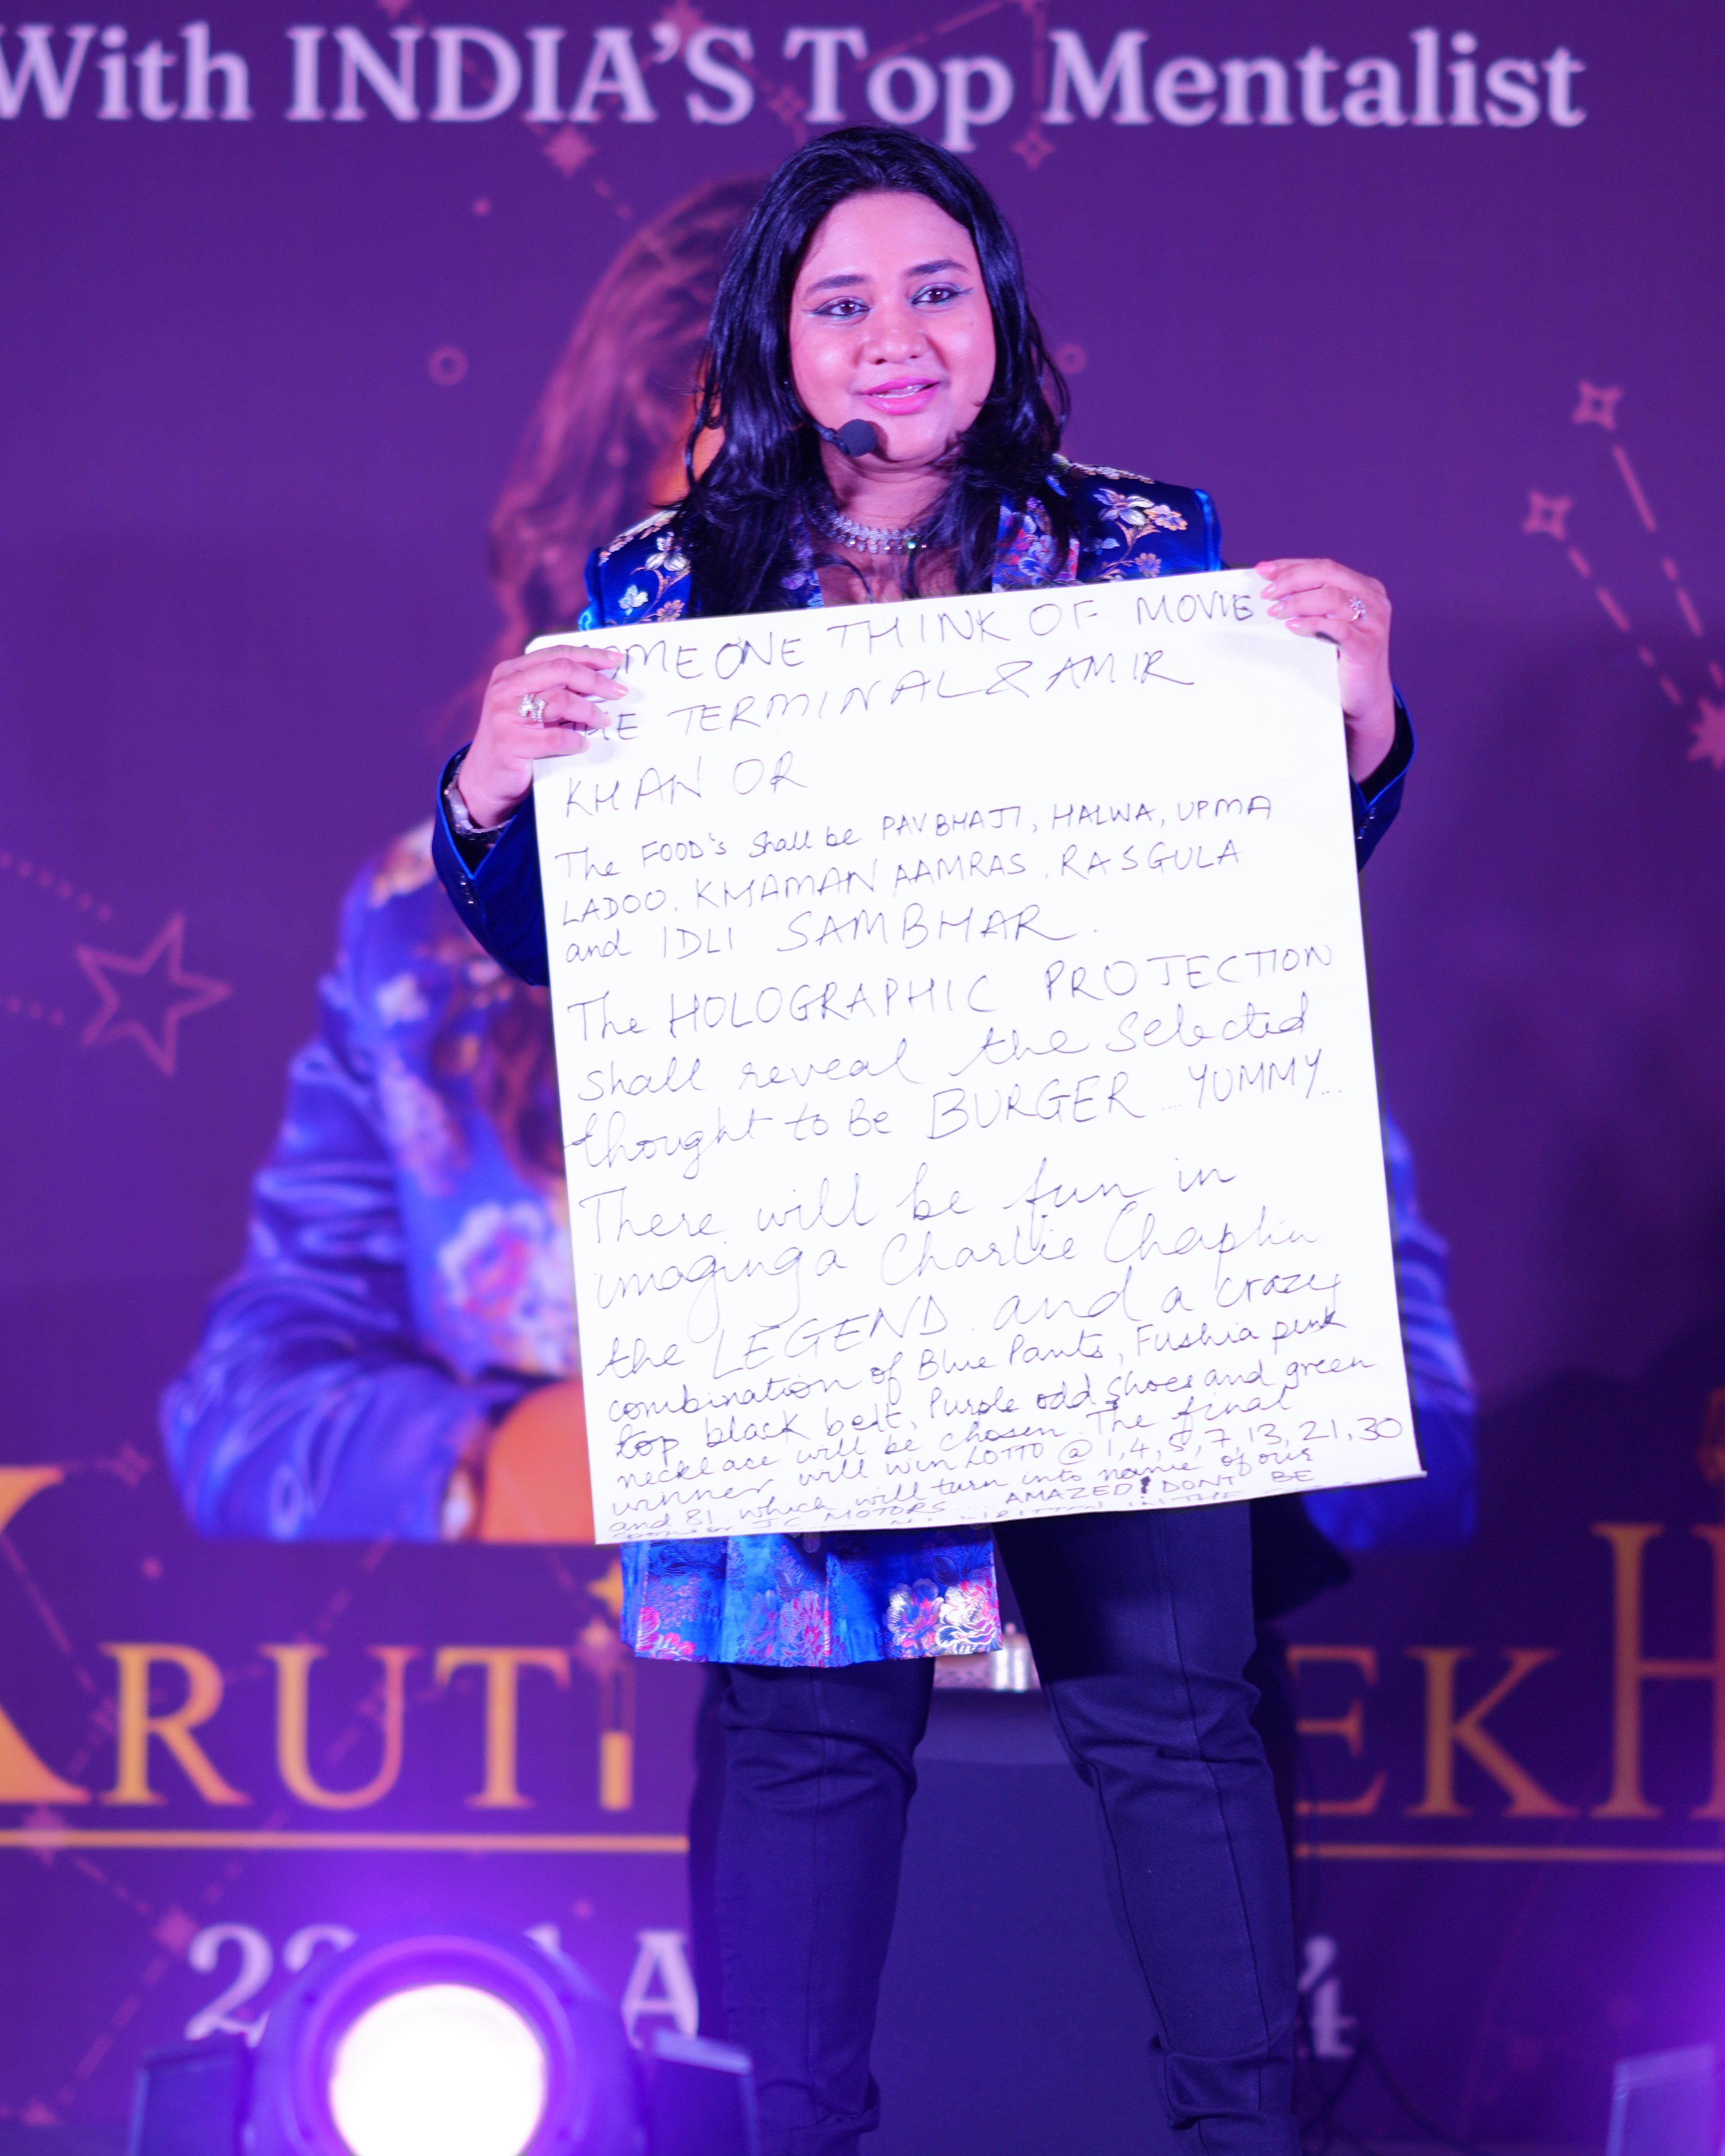 With INDIA'S Top Mentalist
SOMEONE THINK OF MOVIE
THE TERMINAL & AMIR
KHAN OR
The FOOD's Shall be PAVBHAJI, HALWA, UPMA
LADOO. KHAMAN AAMRAS, RASGULA
and IDLI SAMBHAR.
The HOLOGRAPHIC PROJECTION
shall reveal the Selected
thought to Be BURGER ... YUMMY...
There will be fun in
imaging a Charlie Chaplin
the LEGEND and a crazy
combination of Blue Pants, Fushia pink
top black belt, Purple odd shoes and green
necklace will be chosen. The final
winner will win LOTTO @ 1, 4, 5, 7, 13, 21, 30
and 81 which will turn into name of our
JC MOTORS AMAZED? DONT BE
KRUTI EKH
22 A 4